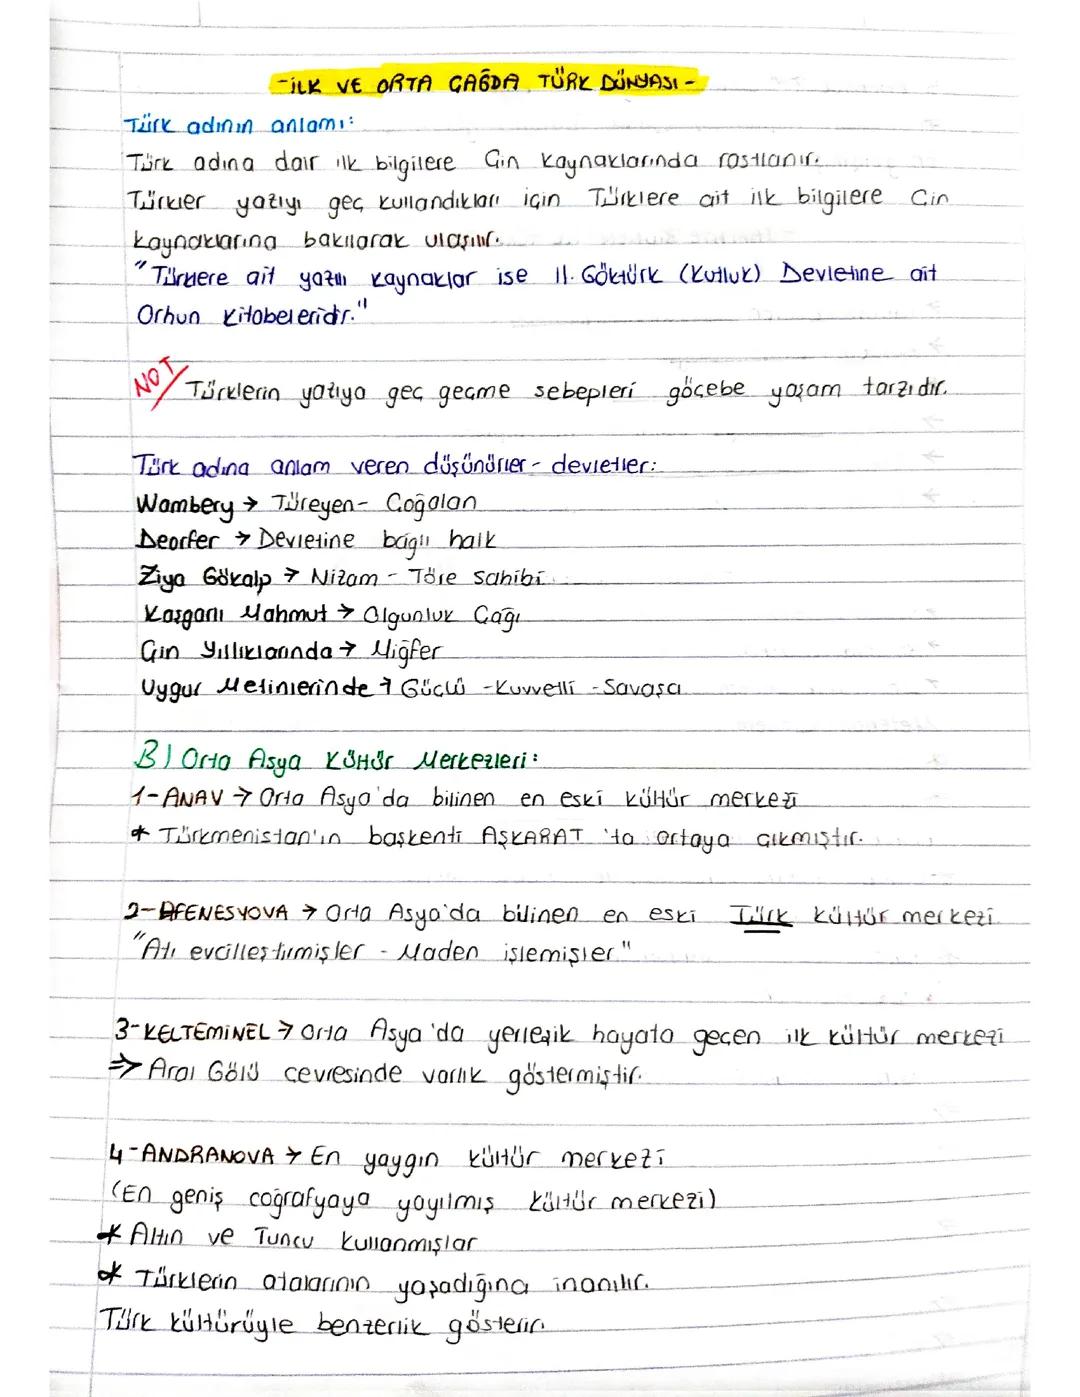 -İLK VE ORTA ÇAĞDA TÜRK DÜNYASI-
Türk adının anlamı:
Türk adına dair ilk bilgilere Çin kaynaklarında rastlanır.
Türkler yazıyı geç kullandıkları için Türklere ait ilk bilgilere Çin
kaynaklarına bakılarak ulaşılır.
"Türklere ait yazılı kaynaklar ise II. Göktürk (Kutluk) Devletine ait
Orhun Kitabeleridir."
NOT/ Türklerin yazıya geç geçme sebepleri göçebe yaşam tarzıdır.
Türk adına anlam veren düşünürler - devletler:
Wambery → Türeyen - Çoğalan
Deorfer → Devletine bağlı halk
Ziya Gökalp → Nizam - Töre sahibi
Kaşgarlı Mahmut → Olgunluk Çağı
Çin Yıllıklarında → Miğfer
Uygur Metinlerinde → Güçlü - Kuvvetli - Savaşçı
B) Orta Asya Kültür Merkezleri:
1-ANAV → Orta Asya'da bilinen en eski kültür merkezi
* Türkmenistan'ın başkenti AŞKABAT 'ta ortaya çıkmıştır.
2-AFENESYOVA → Orta Asya'da bilinen en eski Türk kültür merkezi
"Atı evcilleştirmişler - Maden işlemişler"
3-KELTEMİNEL → Orta Asya'da yerleşik hayata geçen ilk kültür merkezi
⇒ Aral Gölü çevresinde varlık göstermiştir.
4-ANDRANOVA → En yaygın kültür merkezi
(En geniş coğrafyaya yayılmış kültür merkezi)
* Altın ve Tuncu kullanmışlar
* Türklerin atalarının yaşadığına inanılır.
Türk kültürüyle benzerlik gösterir.